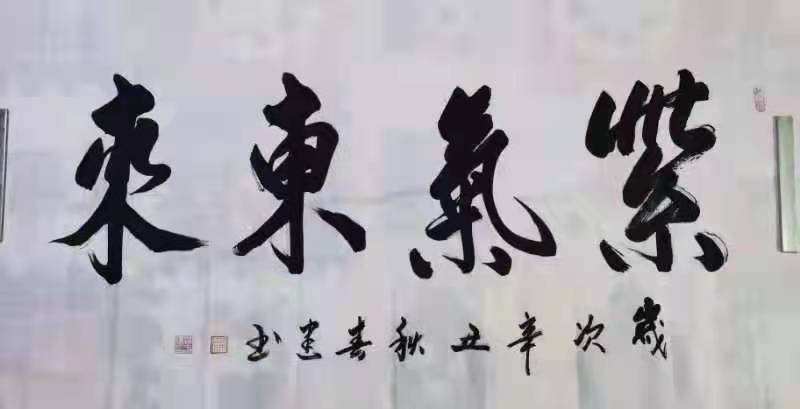 紫氣東來
歲次辛丑秋春建书